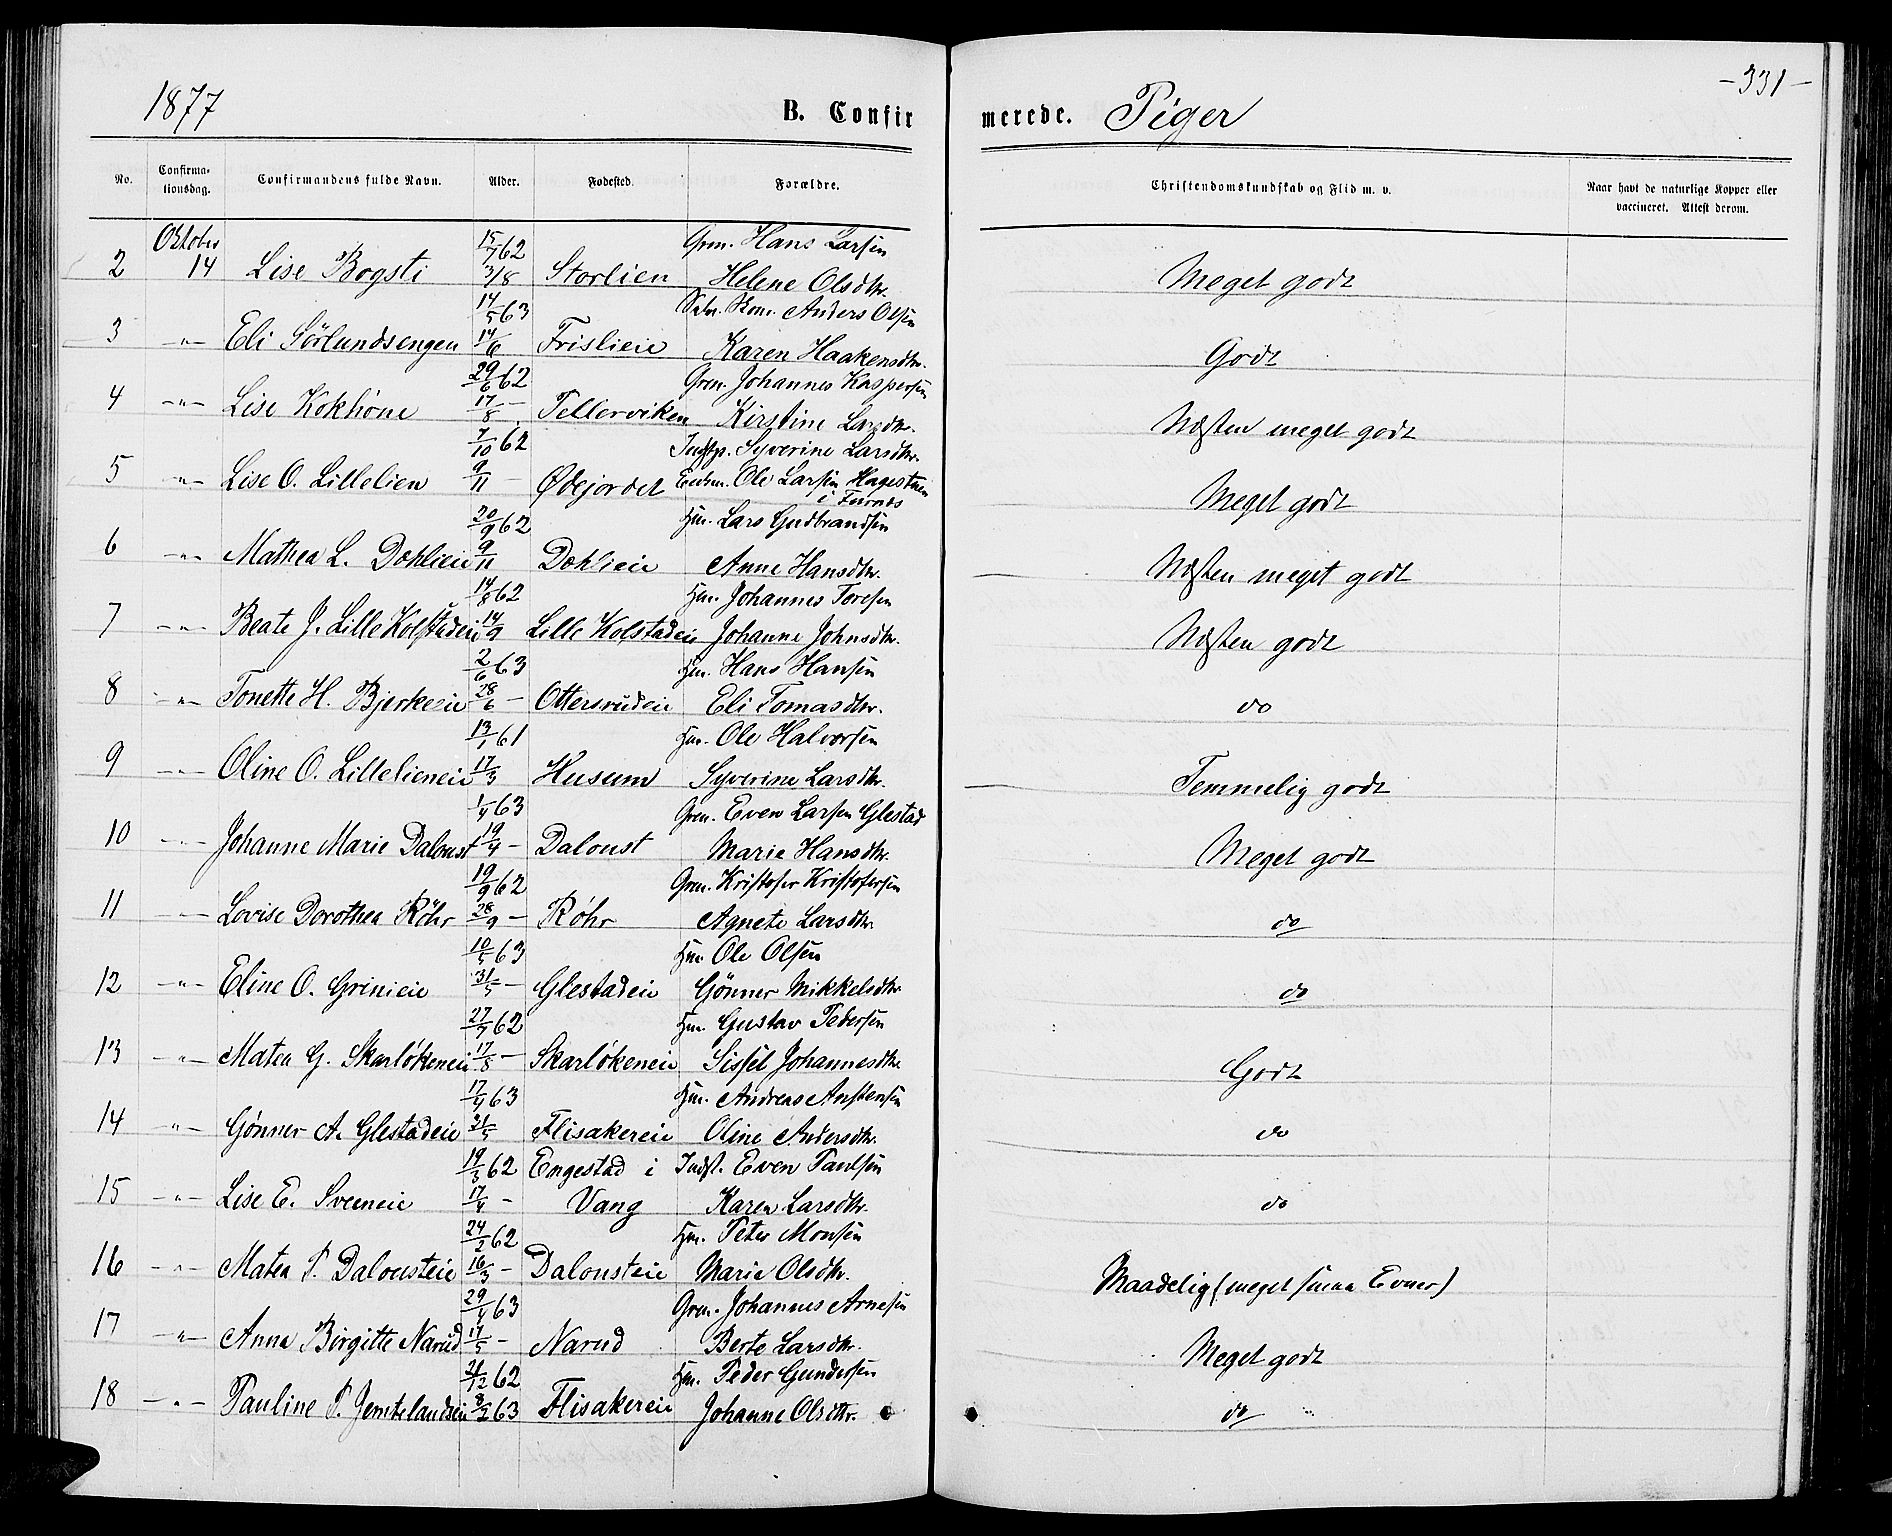 1877 B. Confirmerede. Piger -331-
No. Confirmationsdag. Confirmandens fulde Navn. Alder. Fødested. Forældre. Christendomskundskab og Flid m. v. Naar havt de naturlige Kopper eller vaccineret. Attest derom.
Oktober 15/7 62 Grm. Hans Larsen
2 14 Lise Bogsti 3/8 Storlien Helene Olsdtr. Meget godt
14/5 63 Anders Olsen
3 -"- Eli Sörlundsengen 14/6 Frislieie Karen Haakensdtr. Godt
29/6 62 Grm. Johannes Kaspersen
4 -"- Lise Kokhöne 17/8 - Tellerviken Kirstine Larsdtr. Næsten meget godt
7/10 62 Syverine Larsdtr.
5 -"- Lise O. Lillelien 9/11 - Ødejordet Ole Larsen Hagestuen Meget godt
i Furnæs
20/9 62 Hm. Lars Gudbrandsen
6 -"- Mathea L. Dæhlieie 9/11 Dæhlieie Anne Hansdtr. Næsten meget godt
14/8 62 Hm. Johannes Toresen
7 -"- Beate J. Lille Kolstadeie 14/9 Lille Kolstadeie Johanne Johnsdtr. Næsten godt
2/6 63 Hm. Hans Hansen
8 -"- Tonette H. Bjerkeeie 28/6 - Ottersrudeie Eli Tomasdtr. do
13/1 61 Hm. Ole Halvorsen
9 -"- Oline O. Lillelieneie 17/3 Husum Syverine Larsdtr. Temmelig godt
1/4 63 Grm. Even Larsen Glestad
10 -"- Johanne Marie Daloust 19/4 - Daloust Marie Hansdtr. Meget godt
19/9 62 Grm. Kristofer Kristofersen
11 -"- Lovise Dorothea Röhr 28/9 - Röhr Agnete Larsdtr. do
10/5 63 Hm. Ole Olsen
12 -"- Eline O. Grinieie 31/5 - Glestadeie Gönner Mikkelsdtr do
27/7 62 Hm. Gustav Pedersen
13 -"- Matea G. Skarlökeneie 17/8 - Skarlökeneie Sissel Johannesdtr Godt
17/4 63 Hm. Andreas Anstensen
14 -"- Gönner A. Glestadeie 31/5 Flisakereie Oline Andersdtr. do
19/3 62 Engestad i Indst. Even Paulsen
15 -"- Lise E. Sveeneie 17/4 - Vang Karen Larsdtr. do
24/2 62 Hm. Peter Monsen
16 -"- Matea P. Dalousteie 16/3 - Dalousteie Marie Olsdtr. Maadelig (meget smaa Evner)
29/4 63 Grm. Johannes Arnesen
17 -"- Anna Birgitte Narud 17/5 - Narud Berte Larsdtr. Meget godt
21/12 62 Hm. Peder Gundersen
18 -"- Pauline P. Jemtelandseie 8/2 63 Flisakereie Johanne Olsdtr. do